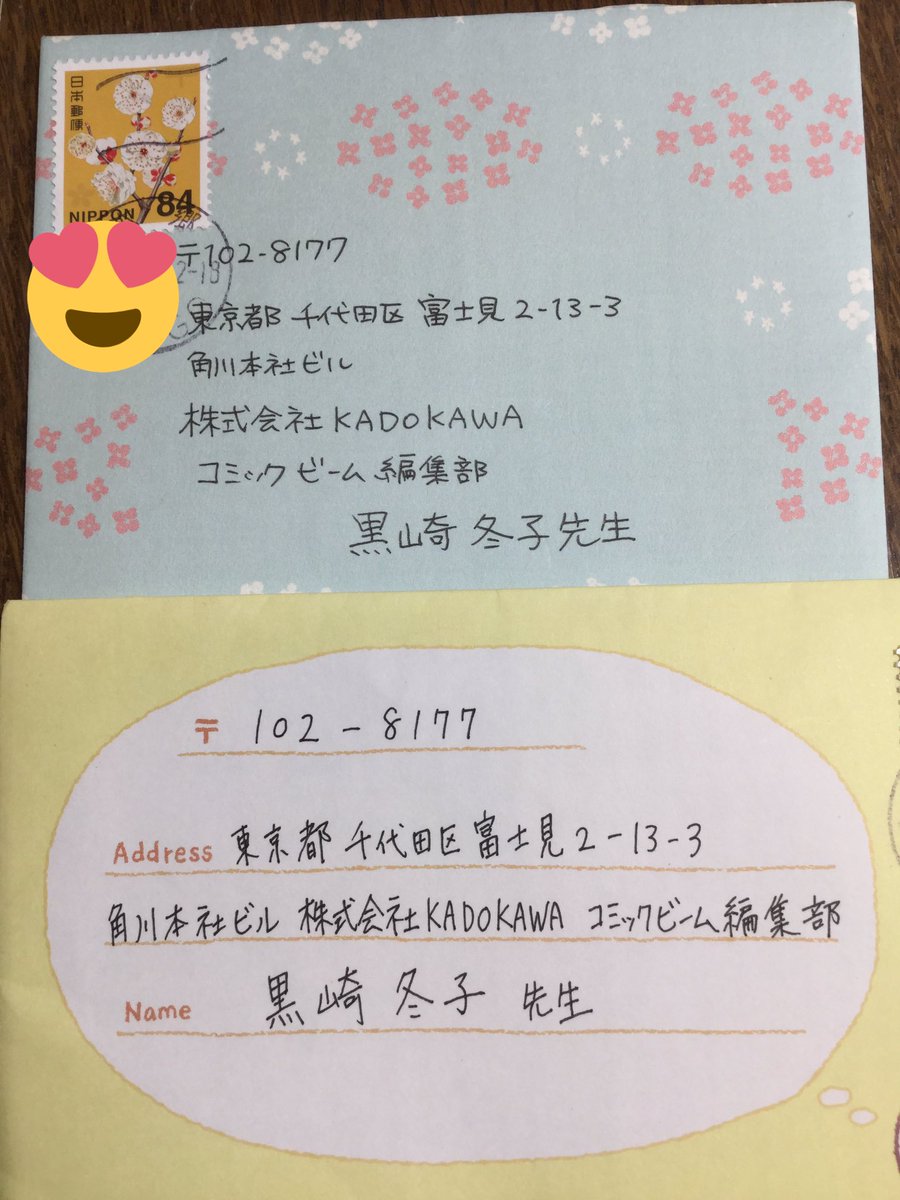 日本郵便
NIPPON 84
〒102-8177
東京都 千代田区 富士見 2-13-3
角川本社ビル
株式会社 KADOKAWA
コミックビーム 編集部
黒崎 冬子先生
〒 102-8177
Address 東京都 千代田区 富士見 2-13-3
角川本社ビル 株式会社KADOKAWA コミックビーム編集部
Name 黒崎 冬子 先生